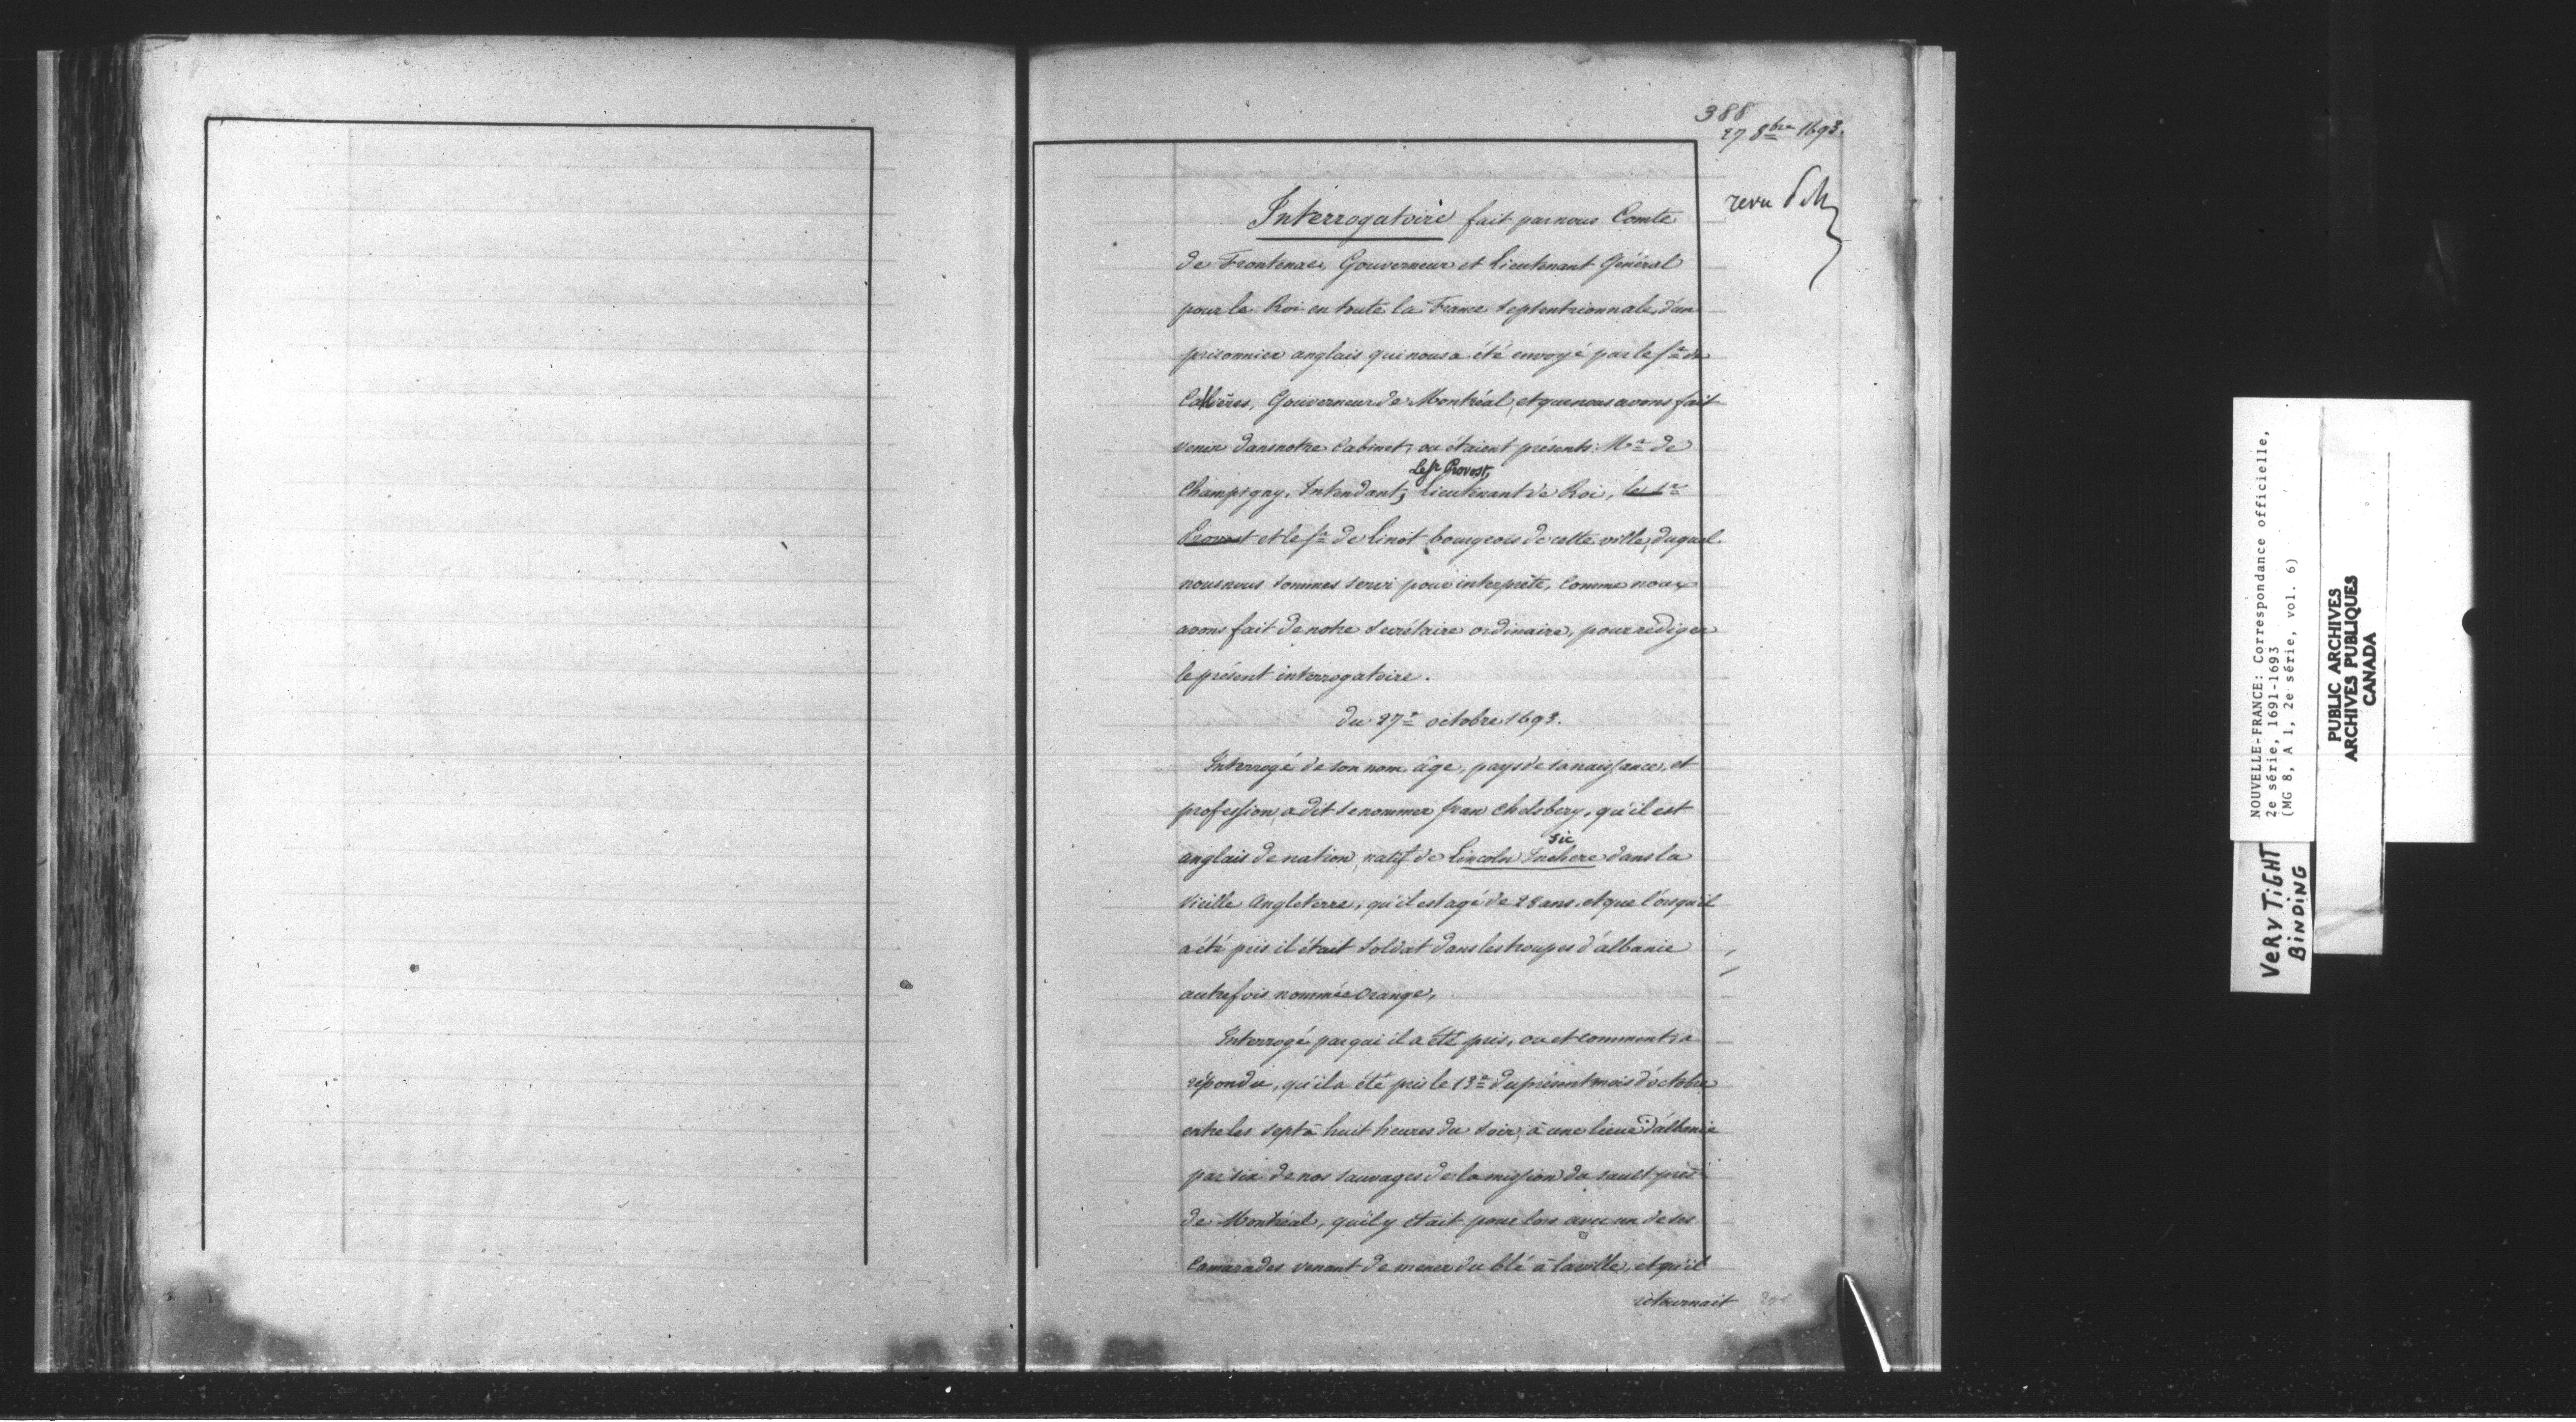 388
27 8bre 1693.
revu
Interrogatoire fait par nous Comte
de Frontenac, Gouverneur et Lieutenant Général
pour le Roi en toute la France Septentrionnale, d'un
prisonnier anglais qui nous a été envoyé par le Sr de
Callières, Gouverneur de Montréal, et que nous avons fait
venir dans notre Cabinet, ou étaient présents: Mr de
Le Sr Provost,
Champigny, Intendant, Lieutenant de Roi, le Sr
Provost et le Sr de Linot bourgeois de cette ville, duquel
nous nous sommes servi pour interprète, comme nous
avons fait de notre secrétaire ordinaire, pour rédiger
le présent interrogatoire.
du 27e octobre 1693.
Interrogé de son nom âge, pays de sa naissance, et
profession, a dit se nommer Jean Chelsbery, qu'il est
sic
anglais de nation, natif de Lincoln Inchere dans la
Vieille Angleterre, qu'il est agé de 28 ans, et que lorsqu'il
a été pris il était soldat dans les troupes d'albanie
autrefois nommée Orange,
Interrogé par qui il a été pris, ou et comment, a
répondu, qu'il a été pris le 13e du présent mois d'octobre
entre les sept à huit heures du soir, à une lieue d'albanie
par six de nos sauvages de la mission du sault près
de Montréal, qu'il y était pour lors avec un de ses
Camarades venant de mener du blé à la ville, et qu'il
retournait
NOUVELLE-FRANCE: Correspondance officielle,
2e série, 1691-1693
(MG 8, A 1, 2e série, vol. 6)
PUBLIC ARCHIVES
ARCHIVES PUBLIQUES
CANADA
VERY TIGHT
BINDING